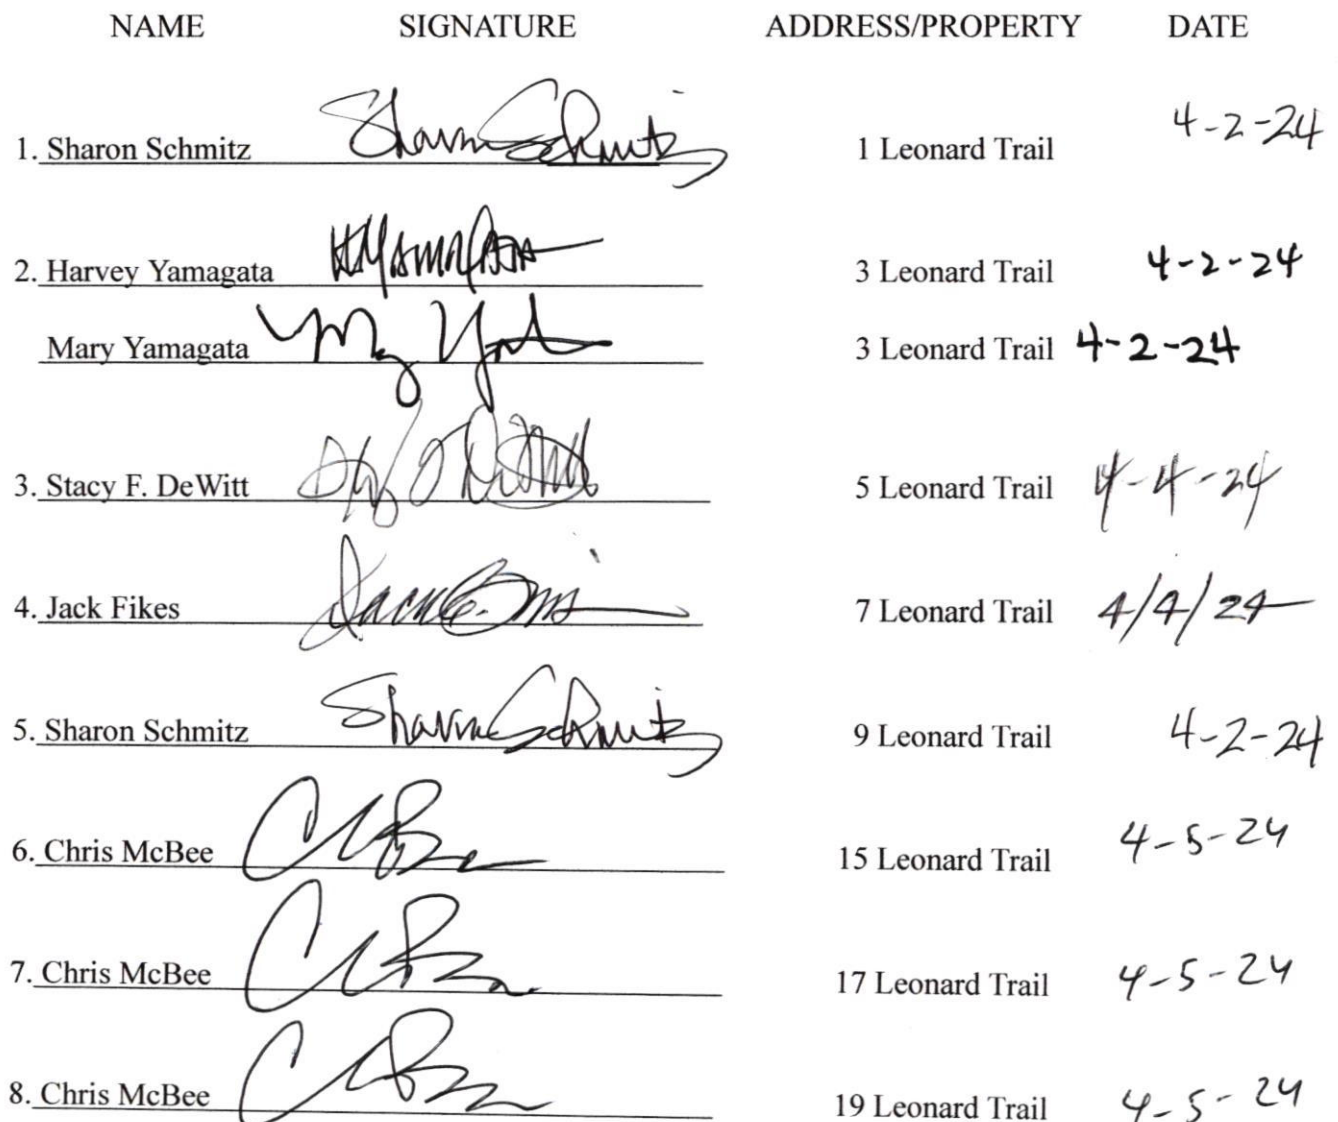 NAME SIGNATURE ADDRESS/PROPERTY DATE
1. Sharon Schmitz Sharon Schmitz 1 Leonard Trail 4-2-24
2. Harvey Yamagata HYamagata 3 Leonard Trail 4-2-24
Mary Yamagata 3 Leonard Trail 4-2-24
3. Stacy F. DeWitt 5 Leonard Trail 4-4-24
4. Jack Fikes 7 Leonard Trail 4/4/24
5. Sharon Schmitz Sharon Schmitz 9 Leonard Trail 4-2-24
6. Chris McBee 15 Leonard Trail 4-5-24
7. Chris McBee 17 Leonard Trail 4-5-24
8. Chris McBee 19 Leonard Trail 4-5-24